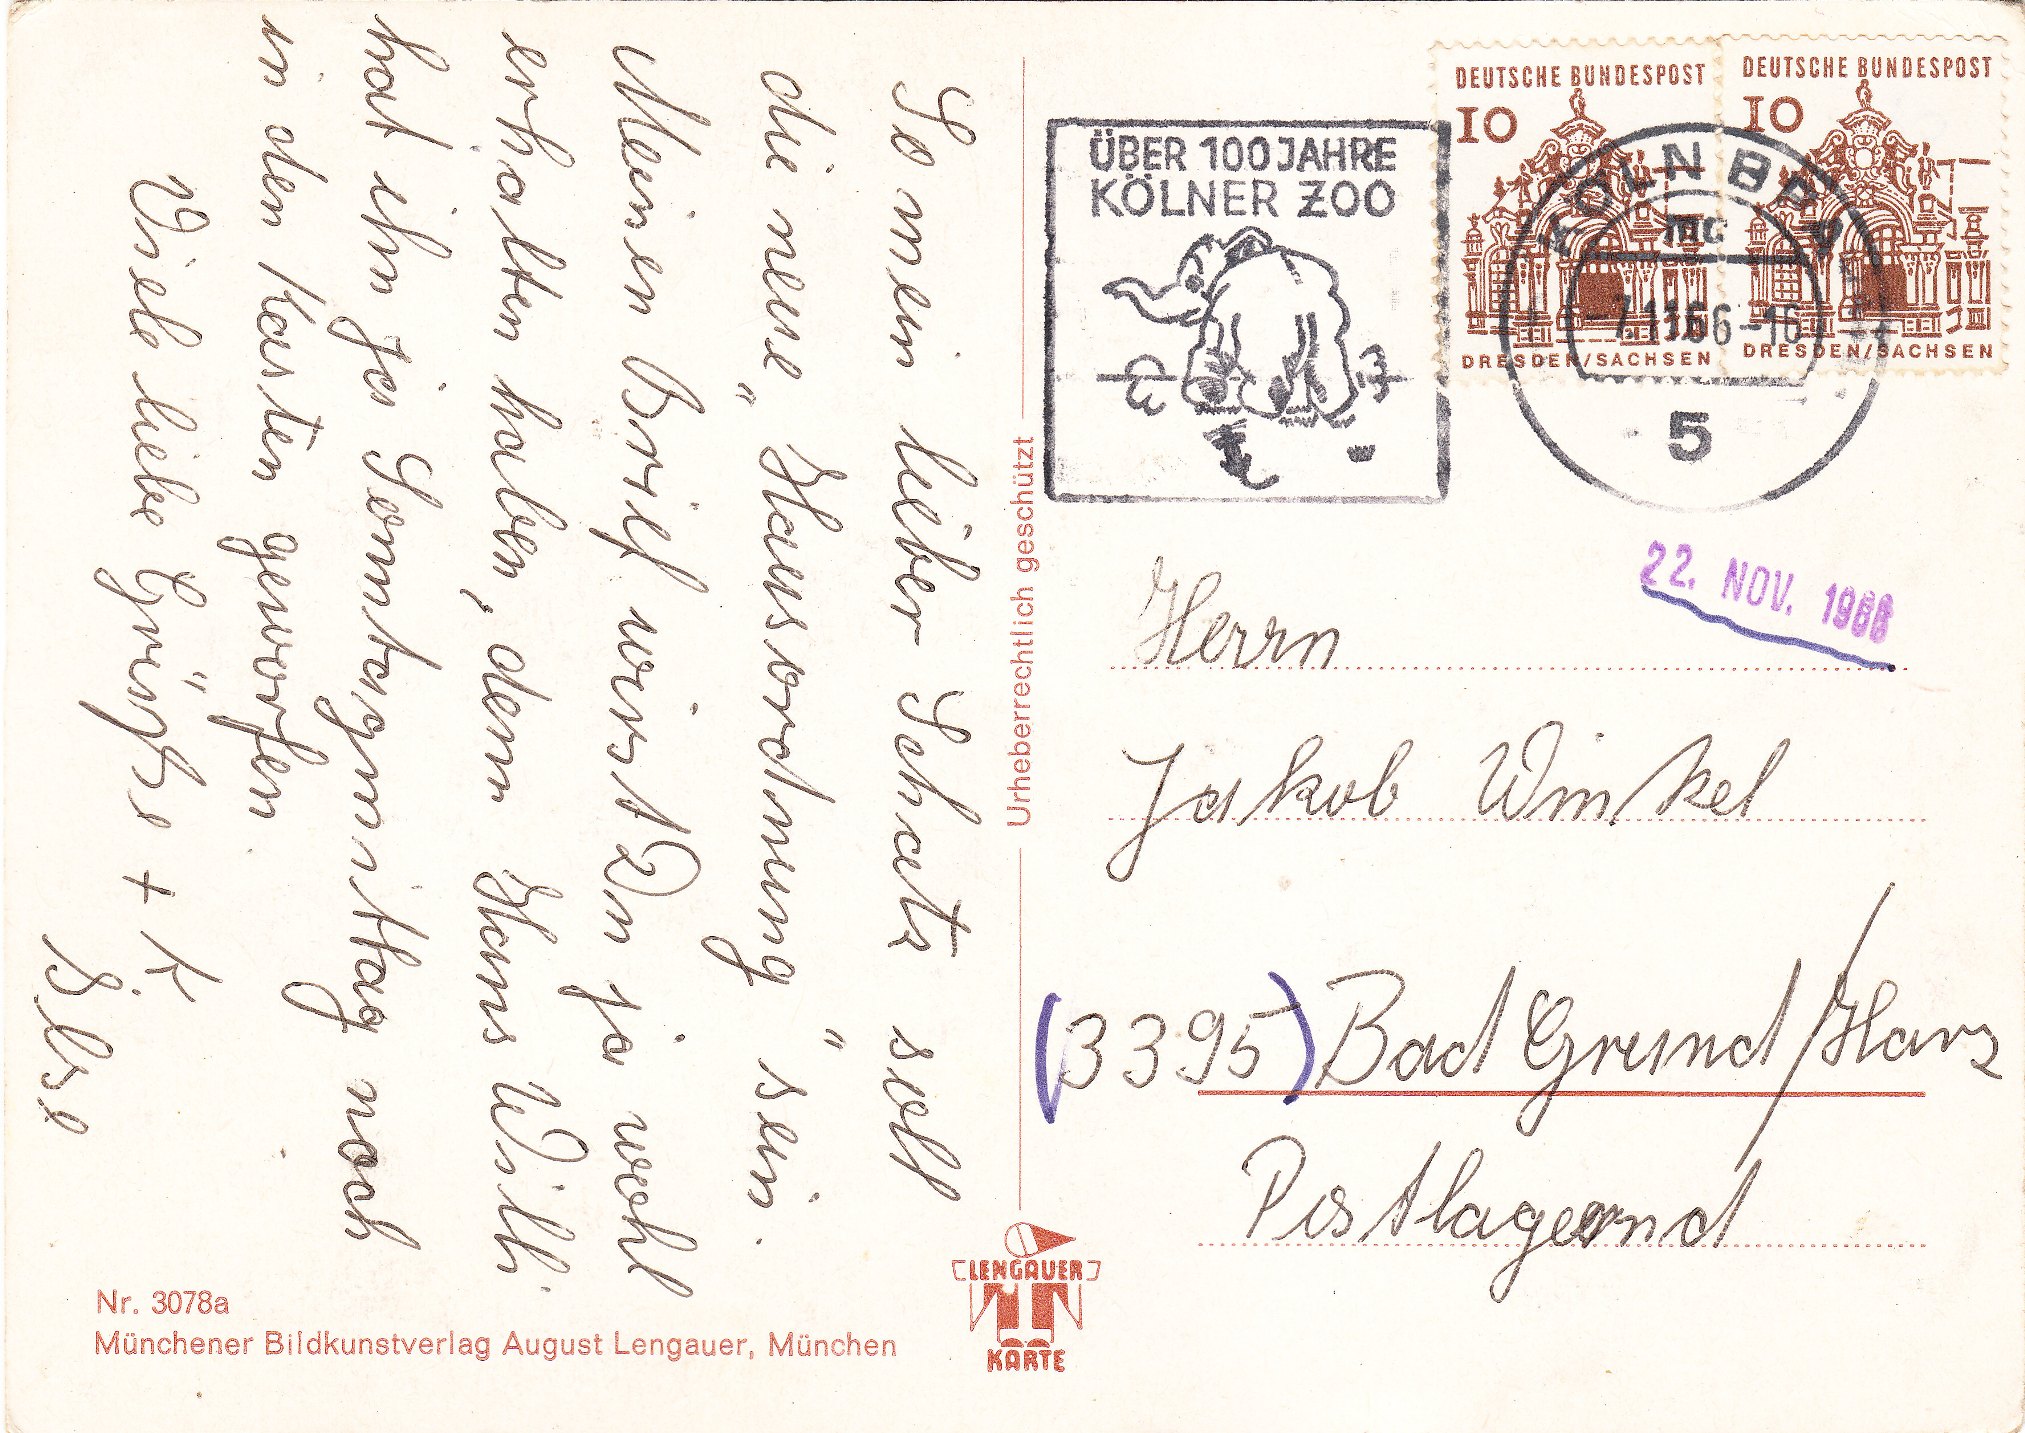 So mein lieber Schatz soll
die neue "Hausordnung" sein.
Meinen Brief wirst Du ja wohl
erhalten haben, denn Hans Willi
hat ihn ja Sonntagmittag noch
in den Kasten geworfen
Viele liebe Grüße + K
Ilse
Urheberrechtlich geschützt
Nr. 3078a
Münchener Bildkunstverlag August Lengauer, München
LENGAUER
KARTE
ÜBER 100 JAHRE
KÖLNER ZOO
DEUTSCHE BUNDESPOST
10
DRESDEN/SACHSEN
DEUTSCHE BUNDESPOST
10
DRESDEN/SACHSEN
KÖLN
mc
-7.11.66-16
5
22. NOV. 1966
Herrn
Jakob Winkel
(3395) Bad Grund/Harz
Postlagernd